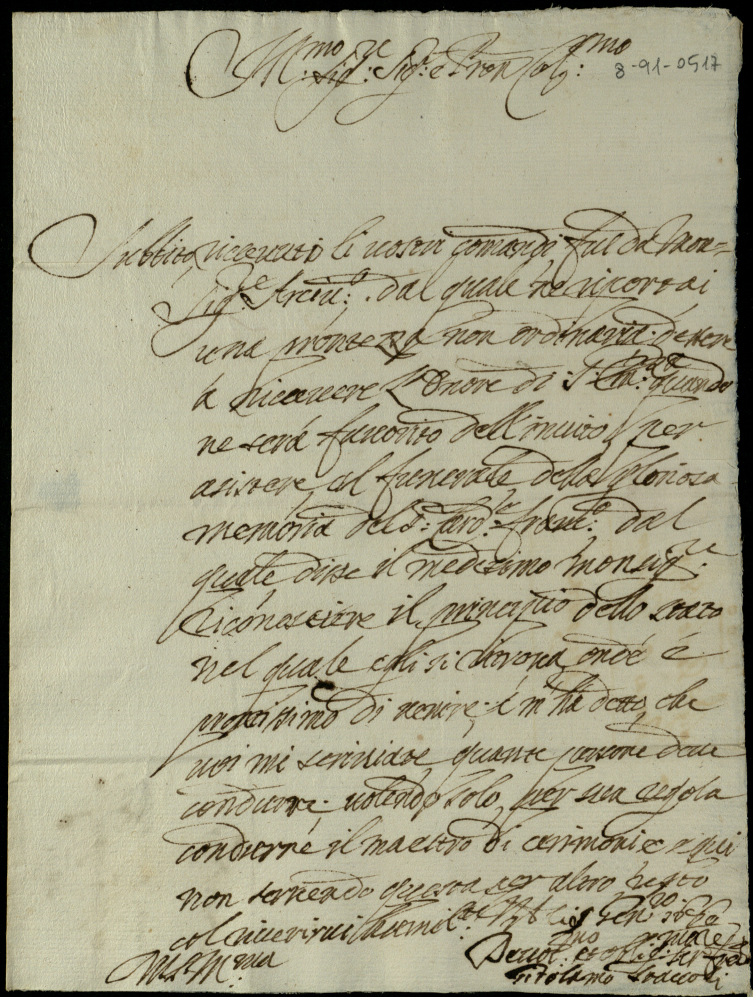 Ill:mo Sig:re Sig:r e Pron Col:mo
8-91-0517
Subbito riceuuti li uostri comandi fui da Mon=
Sig:re Arciu:o dal quale ne riportai
una prontezza non ordinaria d'essere
a riceuere l'honore di S. Em:za quando
ne será fauorito dell'inuito per
asistere al funerale della gloriosa
memoria del S:r Card:le dal
quale disse il medesimo Monsig:re
riconoscere il principio dello stato
nel quale egli si troua, onde é
prontissimo di uenire; é m'há detto, che
uoi mi scriuiate quante persone deue
condurre, uolendo solo per sua regola
condurre il maestro di cerimonie e qui
non seruendo questa per altro resto
col riuerirui humil:te
V.S. Ill:ma
Girolamo